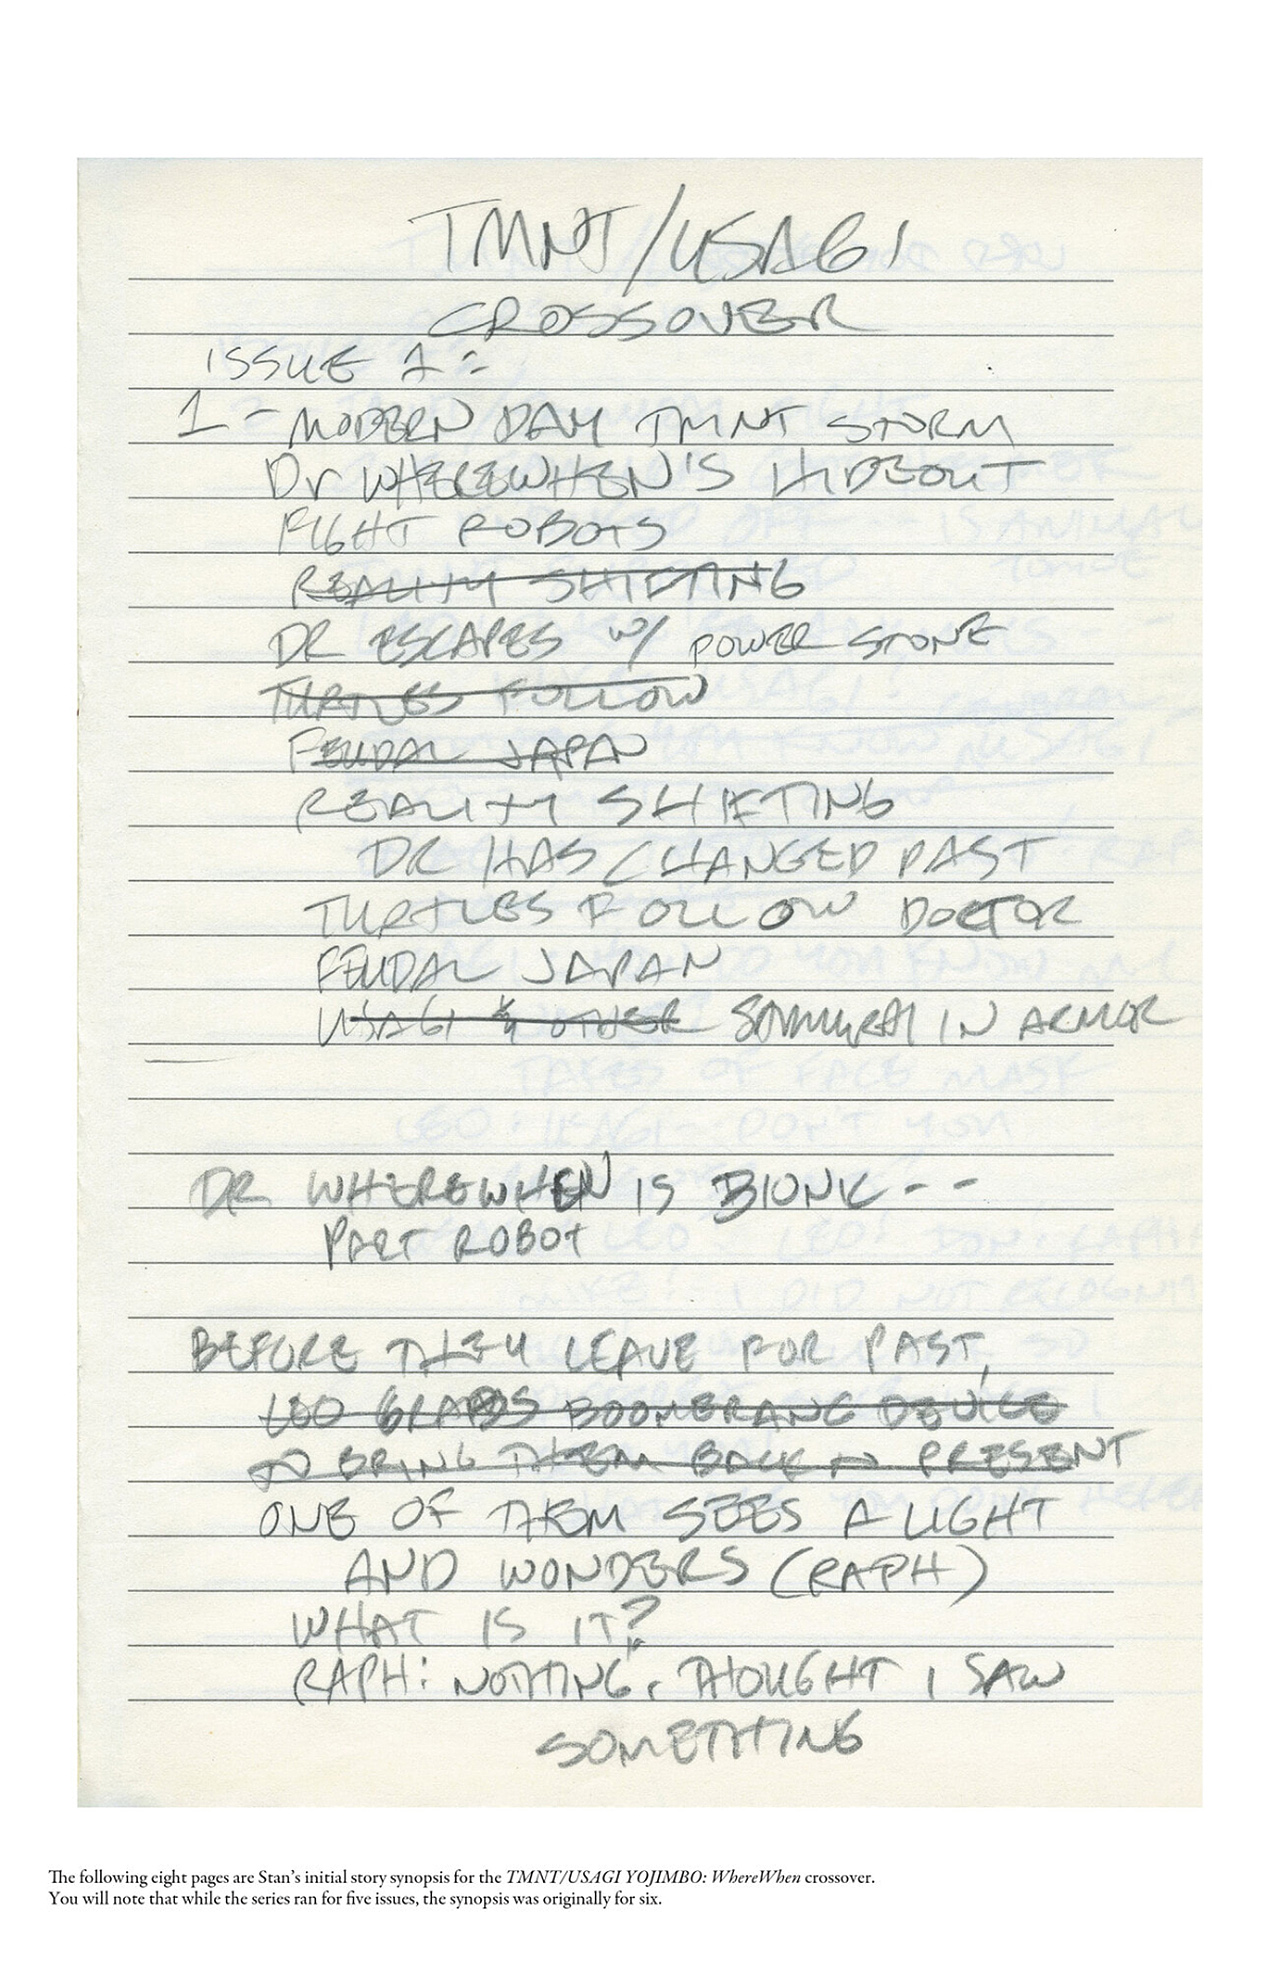 TMNT/USAGI
CROSSOVER
ISSUE 1:
1- MODERN DAY TMNT STORM
Dr WHEREWHEN'S HIDEOUT
FIGHT ROBOTS
REALITY SHIFTING
DR ESCAPES W/ POWER STONE
TURTLES FOLLOW
FEUDAL JAPAN
REALITY SHIFTING
DR HAS CHANGED PAST
TURTLES FOLLOW DOCTOR
FEUDAL JAPAN
USAGI & OTHER SAMURAI IN ARMOR
DR WHEREWHEN IS BIONIC--
PART ROBOT
BEFORE THEY LEAVE FOR PAST,
LEO GRABS BOOMERANG DEVICE
TO BRING THEM BACK TO PRESENT
ONE OF THEM SEES A LIGHT
AND WONDERS (RAPH)
WHAT IS IT?
RAPH: NOTHING. THOUGHT I SAW
SOMETHING
The following eight pages are Stan's initial story synopsis for the TMNT/USAGI YOJIMBO: WhereWhen crossover.
You will note that while the series ran for five issues, the synopsis was originally for six.